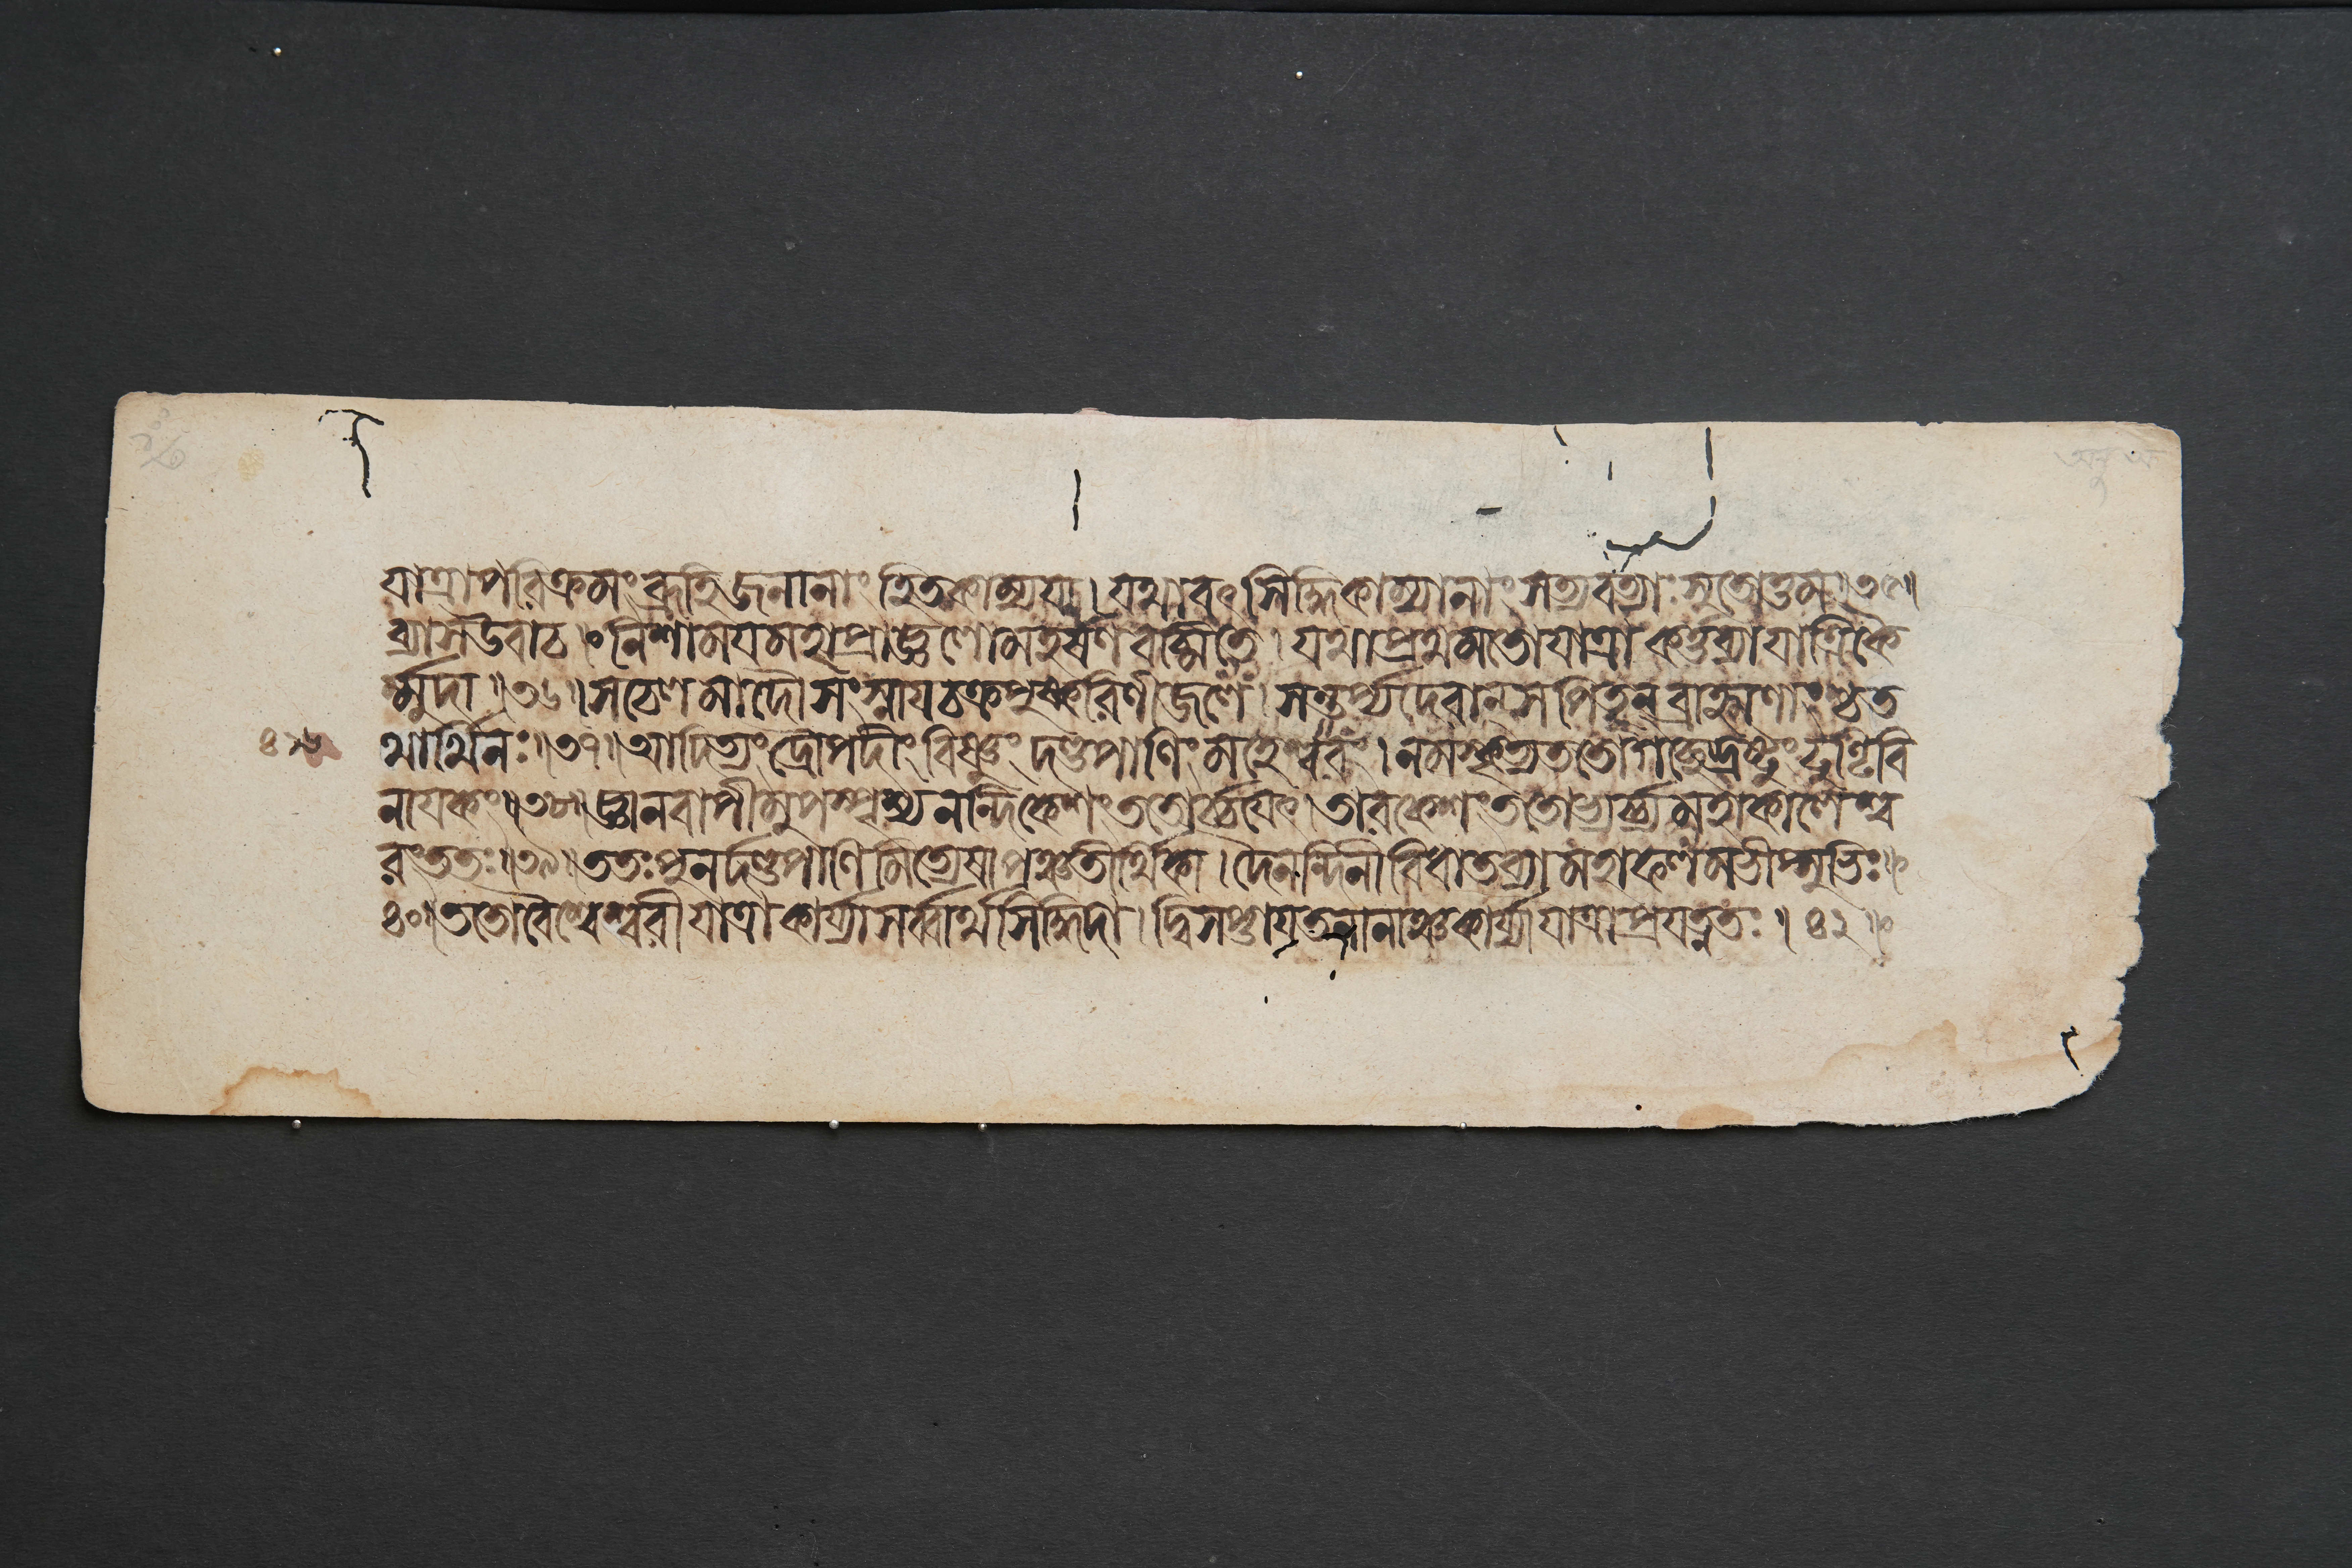 যাত্রাপরিক্রমং ব্রূহি জনানাং হিতকাম্যয়া। যথাবৎ সিদ্ধিকাম্যানাং সত্যবত্যাঃ সুতোত্তম॥৩৫॥
ব্যাস উবাচ॥ নিশাময মহাপ্রাজ্ঞ লোমহর্ষণ বচ্মি তে। যথা প্রথমতো যাত্রা কর্ত্তব্যা যাত্রিকৈ
র্ম্মুদা॥৩৬॥ সচেলমাদৌ সংস্নায চক্রপুষ্করিণীজলে। সন্তর্প্য দেবান্ সপিতৄন্ ব্রাহ্মণাংশ্চ ত
থার্থিনঃ॥৩৭॥ আদিত্যং দ্রৌপদীং বিষ্ণুং দণ্ডপাণিং মহেশ্বরং। নমস্কৃত্য ততো গচ্ছেদ্দ্রষ্টুং ঢুণ্ঢিবি
নাযকং॥৩৮॥ জ্ঞানবাপীমুপস্পৃশ্য নন্দিকেশং ততোর্চ্চযেৎ। তারকেশং ততোভ্যর্চ্য মহাকালেশ্ব
রং ততঃ॥৩৯॥ ততঃ পুনর্দণ্ডপাণিমিত্যেষা পঞ্চতীর্থিকা। দৈনন্দিনী বিধাতব্যা মহাফলমভীপ্সুভিঃ॥
৪০॥ ততো বৈশ্বেশ্বরী যাত্রা কার্য্যা সর্ব্বার্থসিদ্ধিদা। দ্বিসপ্তাযতনানাঞ্চ কার্য্যা যাত্রা প্রযত্নতঃ॥ ৪১॥